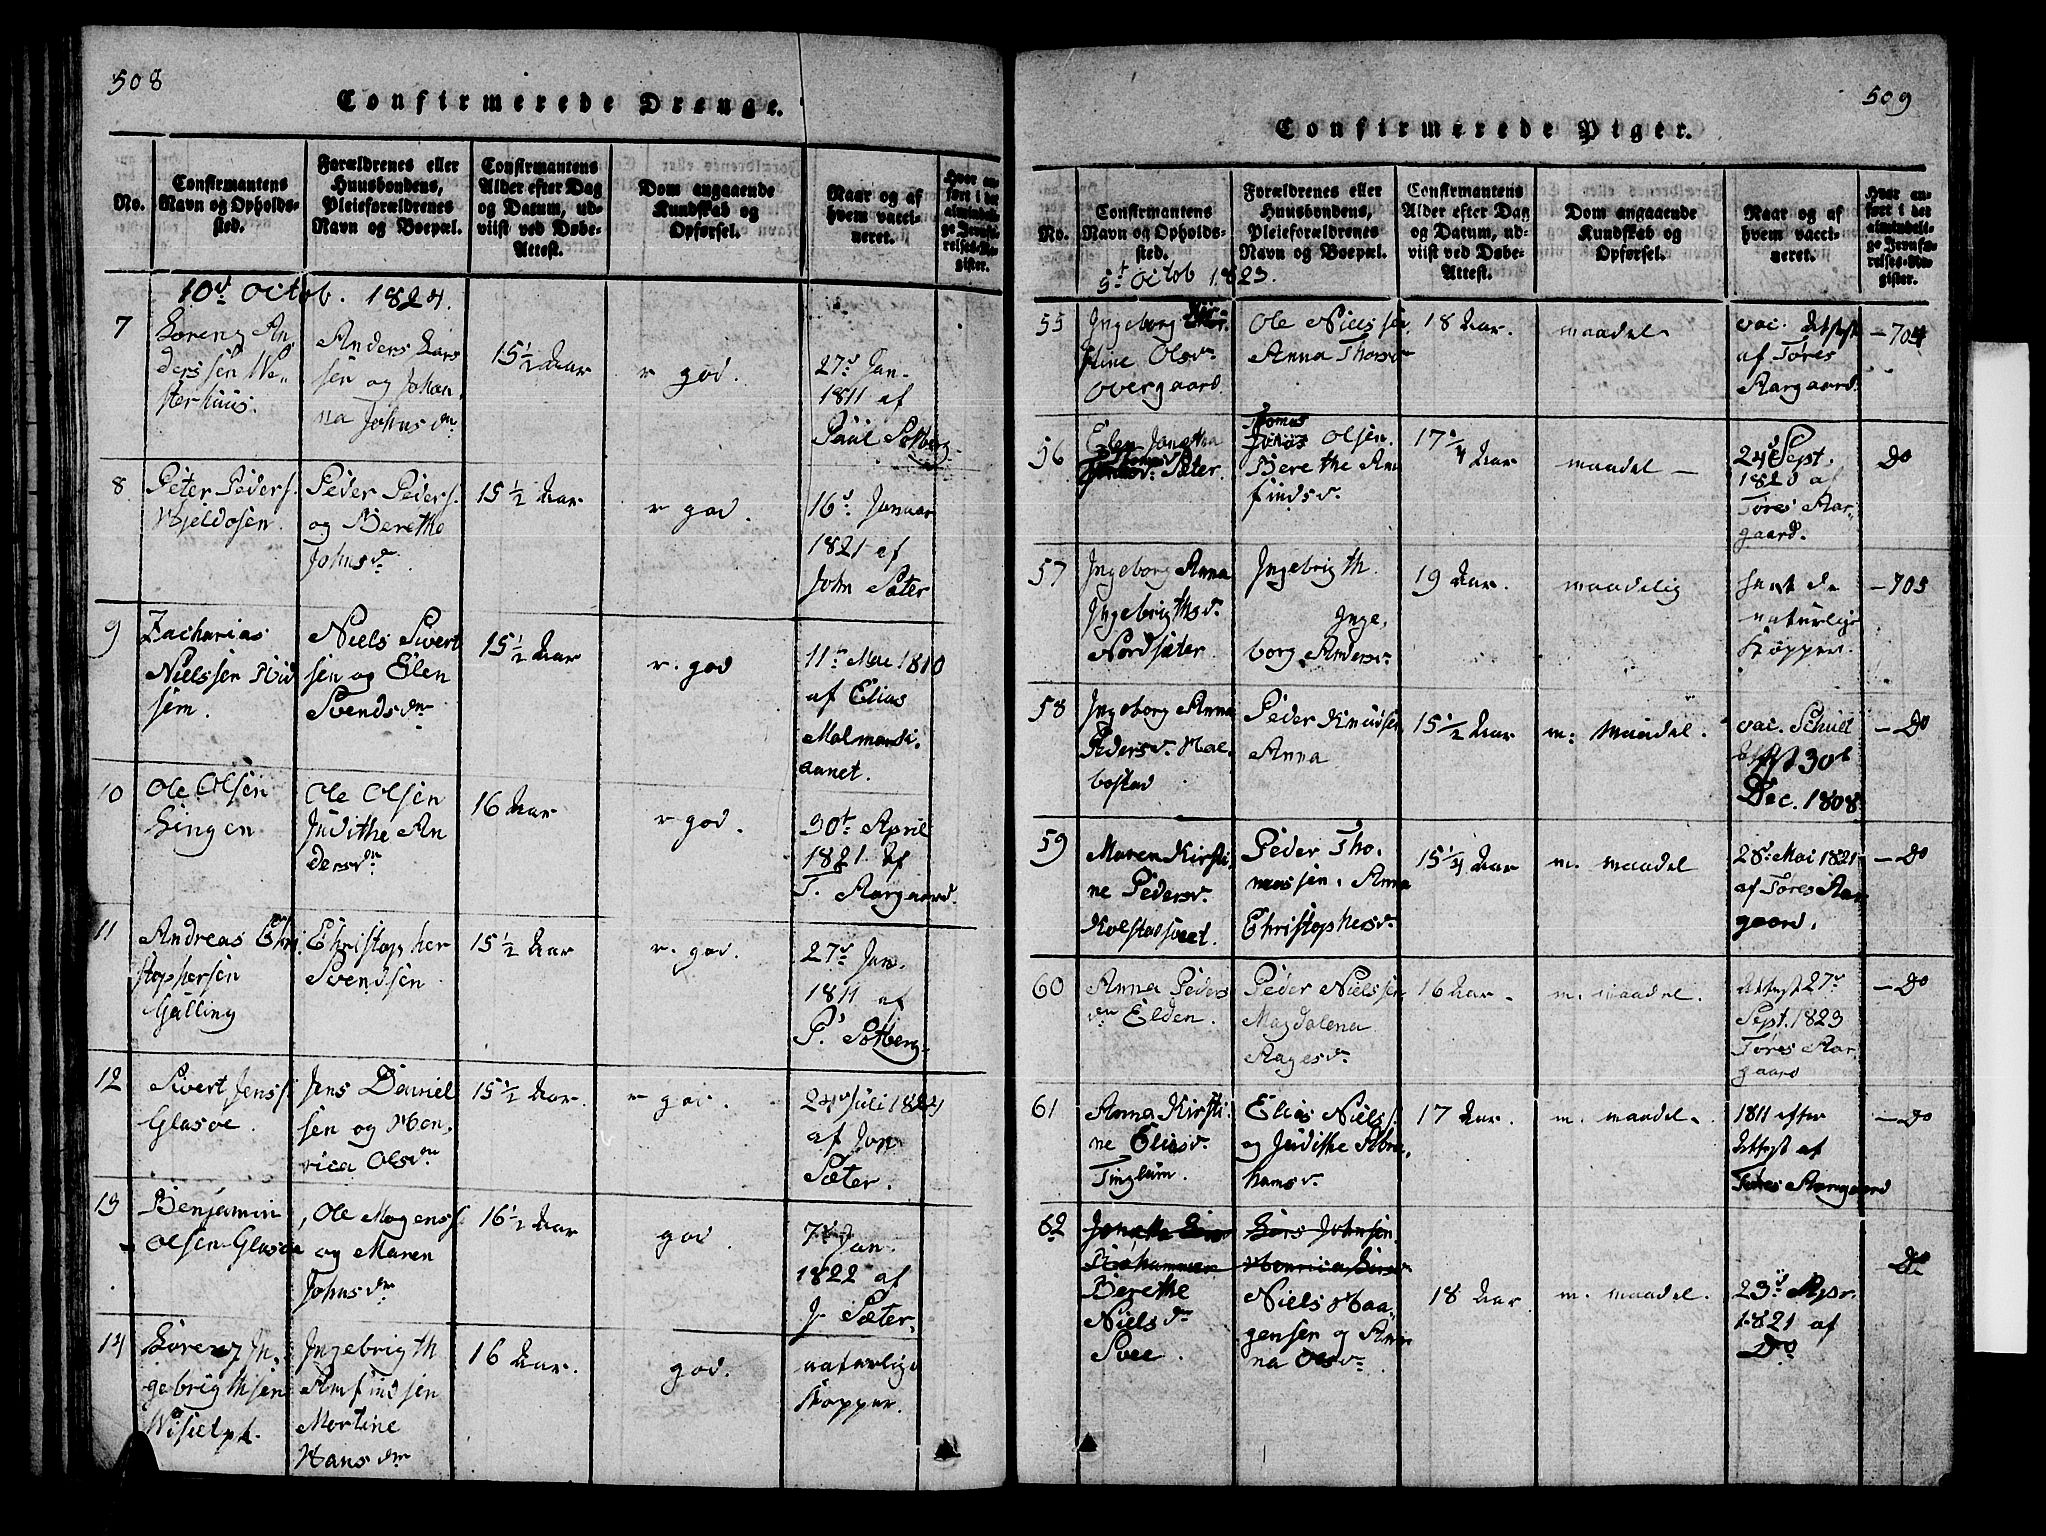 508
Confirmerede Drenge.
No.
Confirmantens
Navn og Opholds-
sted.
Forældrenes eller
Huusbondens,
Pleieforældrenes
Navn og Boepæl.
Confirmantens
Alder efter Dag
og Datum, ud-
viist ved Døbe-
Attest.
Dom angaaende
Kundskab og
Opførsel.
Naar og af
hvem vacci-
neret.
Hvor an-
ført i det
almindeli-
ge Jevnfø-
relses-Re-
gister.
10d Octob. 1824.
7
Lorenz An
derssen We-
sterhuus.
Anders Lars
sen og Johan
na Johnsdn
15 1/2 Aar
god.
27d Jan.
1811 af
Paul Solberg
8
Peter Peders.
Peder Peders.
og Berethe
Johnsdn
15 1/2 Aar
god.
16d Januar
1821 af
John Sæter
9
Zacharias
Nielssen
sem.
Niels Sivert
sen og Elen
Svendsdn
15 1/2 Aar
god
11t Mai 1810
af Elias
aanet.
10
Ole Olsen
Lingen
Ole Olsen
Judithe An
dersdn
16 Aar
god.
30t April
1821 af
T. Aargaard.
11
Andreas Chri
stophersen
Gælling
Christopher
Svendsen
15 1/2 Aar
god.
27d Jan.
1811 af
P. Solberg
12
Sivert Jenss.
Glasøe.
Jens Daniel
sen og Hen-
rica Olsdn
15 1/2 Aar.
god.
24d Juli
af Jon
Sæter.
13
Benjamin
Olsen Glasøe
Ole Mogenss.
og Maren
Johnsdn
16 1/2 Aar
god.
7d Jan.
1822 af
J. Sæter.
14
Lorenz In-
gebrigthsen
Ingebrigth
Amfindsen
Mortine
Hansdn
16 Aar.
god.
naturlige
Kopper.
509
Confirmerede Piger.
No.
Confirmantens
Navn og Opholds-
sted.
Forældrenes eller
Huusbondens,
Pleieforældrenes
Navn og Boepæl.
Confirmantens
Alder efter Dag
og Datum, ud-
viist ved Døbe-
Attest.
Dom angaaende
Kundskab og
Opførsel.
Naar og af
hvem vacci-
neret.
Hvor an-
ført i det
almindeli-
ge Jevnfø-
relses-Re-
gister.
5t Octob 1823.
55
Ingeborg Kir-
stine Olsdr
Overgaard
Ole Nielssen
Anna Thorsdr
18 Aar.
maadel
vac. Attest
af Tøres
Aargaard.
- 704
56
Elen
Sæter.
Thomas
Olsen.
Berethe Am
findsdr.
17 1/4 Aar
maadel -
24d Sept.
1820 af
Tøres Aar-
gaard.
Do
57
Ingeborg Anna
Ingebrigthsdr.
Nordsæter
Ingebrigth.
Inge-
borg Andersdr
19 Aar.
maadelig
havt de
naturlige
Kopper.
- 705
58
Ingeborg Anna
Pedersdr. Hal-
bostad
Peder Knudsen
Anna
15 1/2 Aar
m. maadel.
vac.
Attest 30t
Dec. 1808
- Do
59
Maren Kirsti
ne Pedersdr.
Peder Tho-
massen. Anna
Christophersdr
15 1/4 Aar
m. maadel
28d Mai 1821
af Tøres Aar
gaard.
- Do
60
Anna Peders
dn Elden.
Peder Nielssen
Magdalena
Aagesdn
16 Aar.
m. maadel.
Attest 27d
Sept. 1823
Tøres Aar-
gaard
- Do
61
Anna Kirsti-
ne Eliasdr.
Tinglum.
Elias Nielss.
og Judithe Abra-
hamsdr.
17 Aar.
m. maadel.
1811 efter
Attest af
Tøres Aargaard
- Do
62
Berethe
Nielsdn
Svee.
Lars Johnsen.
Niels Haa-
gensen og An
na Olsdr
18 Aar.
m. maadel.
23d Apr.
1821 af
Do
Do